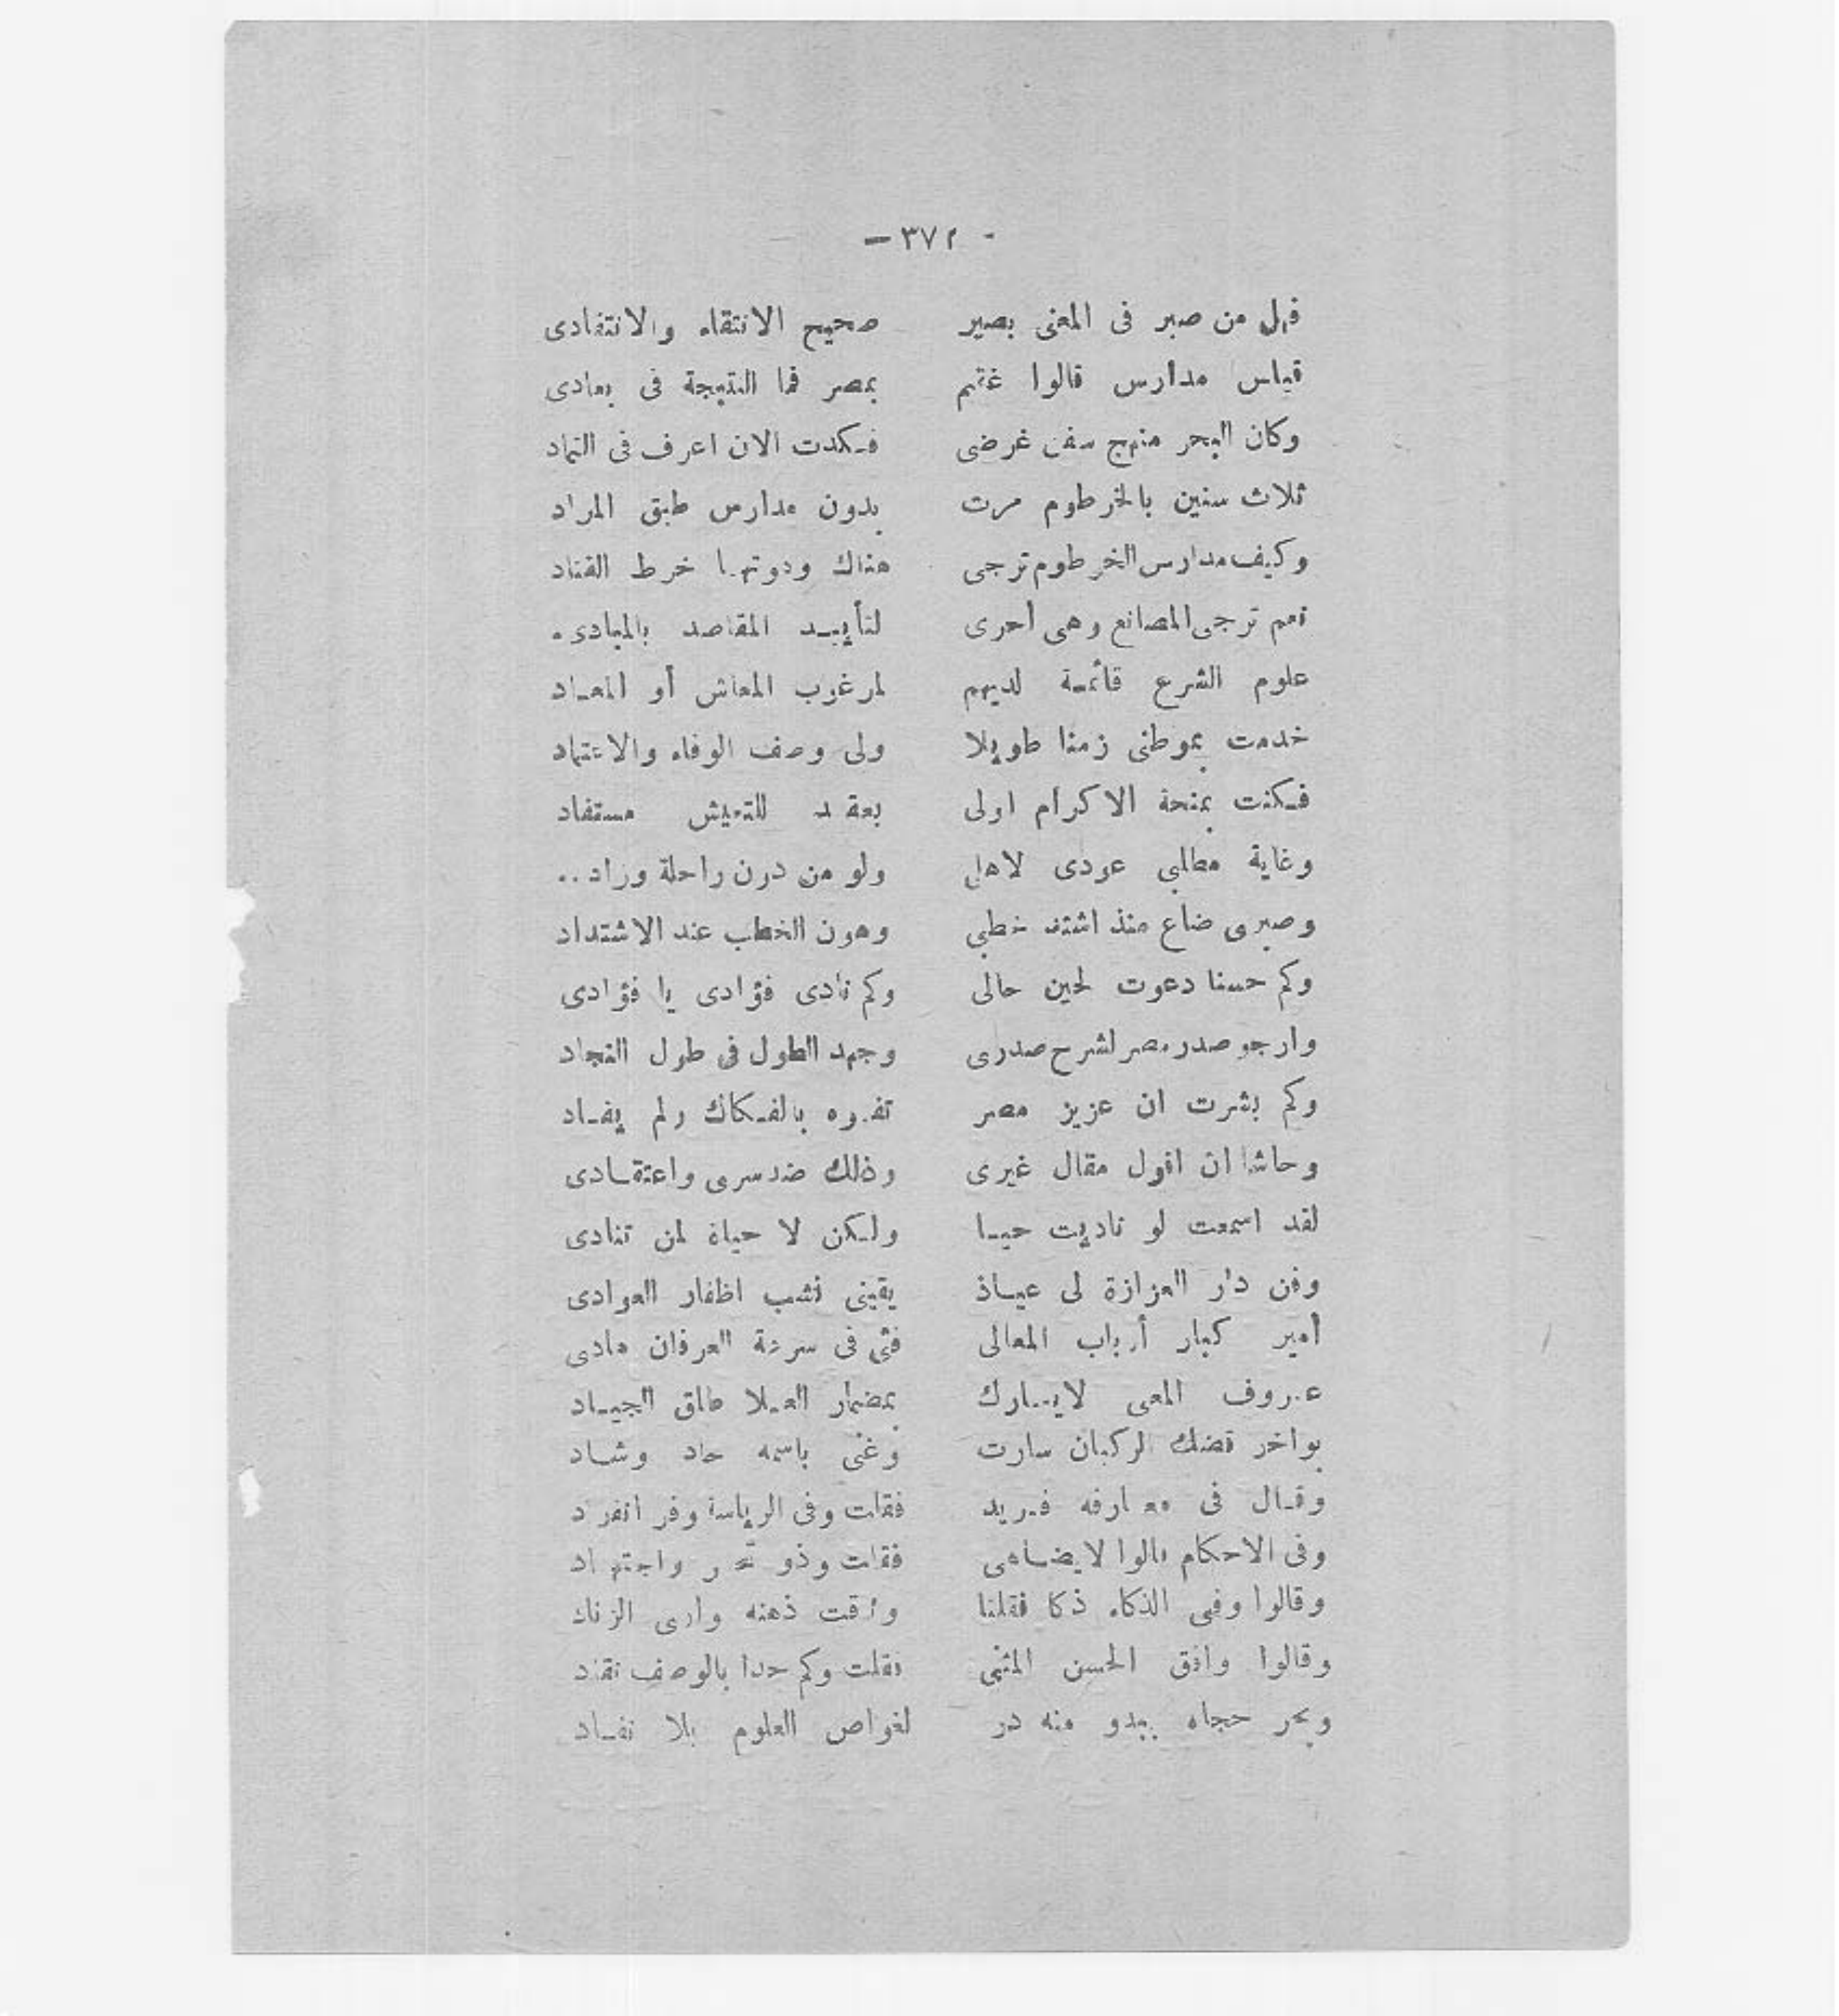 - ٣٧٢ -
فهل من صبر فى المعنى بصير صحيح الانتقاء والانتقادى
قياس مدارس قالوا عقيم بمصر فما النتيجة فى بعادى
وكان البحر منهج سفن غرضى فكدت الان اعرف فى الثماد
ثلاث سنين بالخرطوم مرت بدون مدارس طبق المراد
وكيف مدارس الخرطوم ترجى هناك ودونها خرط القتاد
نعم ترجى المصانع وهى أحرى لتأييد المقاصد بالمبادى .
علوم الشرع قائمة لديهم لمرغوب المعاش أو المعاد
خدمت بموطنى زمنا طويلا ولى وصف الوفاء والاعتماد
فكنت بمنحة الاكرام اولى بعقد للتعيش مستفاد
وغاية مطلبى عودى لاهلى ولو من درن راحلة وزاد ..
وصبرى ضاع منذ اشتد خطبى وهون الخطب عند الاشتداد
وكم حسنا دعوت لحين حالى وكم نادى فؤادى يا فؤادى
وارجو صدر مصر لشرح صدرى وجهد الطول فى طول النجاد
وكم بشرت ان عزيز مصر تفوه بالفكاك ولم يفاد
وحاشا ان اقول مقال غيرى وذلك ضد سرى واعتقادى
لقد اسمعت لو ناديت حيا ولكن لا حياة لمن تنادى
وفى دار العزازة لى عياذ يقينى نشب اظفار العوادى
أمير كبار أرباب المعالى فتى فى سرعة العرفان هادى
عروف المعى لايبارك بمضمار العلا طلق الجياد
بواخر فضلك الركبان سارت وغنى باسمه حاد وشاد
وقال فى معارفه فريد فقلت وفى الرياسة وفر انفرد
وفى الاحكام قالوا لايضاهى فقلت وذو تحر واجتهاد
وقالوا وفى الذكاء ذكا فقلنا وثاقت ذهنه وارى الزناد
وقالوا وافق الحسن المثنى فقلت وكم حدا بالوصف نقاد
وبحر حجاه يبدو منه در لغواص العلوم بلا نفاد